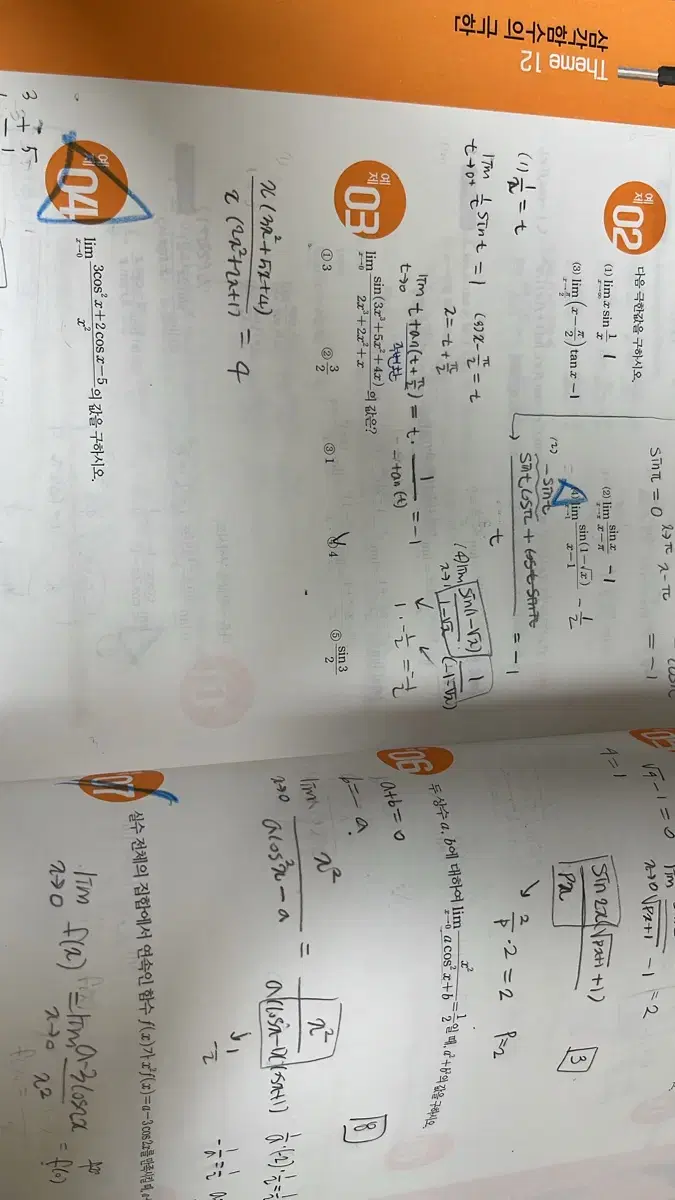 Theme 12
삼각함수의 극한
예제 02
다음 극한값을 구하시오.
(1) lim x→∞ x sin 1/x   1
(2) lim x→π sin x/(x-π)   -1
(3) lim x→π/2 (x-π/2) tan x   -1
lim x→1 sin(1-√x)/(x-1)   -1/2
sinπ = 0
= -1
(1) 1/x = t
lim t→0+ 1/t sin t = 1
(3) x-π/2 = t
x = t+π/2
lim t→0 t tan(t+π/2) = t · 1/-tan(t) = -1
(2) -sin t
sin t cosπ + cos t sinπ / t = -1
(4) lim x→1 sin(1-√x)/1-√x · 1/(-1-√x)
1 · -1/2 = -1/2
예제 03
lim x→0 sin(3x³+5x²+4x)/(2x³+2x²+x) 의 값은?
① 3
② 3/2
③ 1
④ 4
⑤ sin3/2
x(3x²+5x+4)/x(2x²+2x+1) = 4
예제 04
lim x→0 (3cos²x+2cos x-5)/x² 의 값을 구하시오.
3 + 5
√4 - 1 = 0
4 = 1
√px+1 - 1 = 2
sin2x(√px+1 +1)
px
2/p · 2 = 2
P=2
3
06
두 상수 a, b에 대하여 lim x→0 x²/(a cos²x+b) = 1/2일 때, a²+b²의 값을 구하시오.
a+b=0
b=-a
lim x→0 x²/(a cos²x - a) = x²/a(cosx-1)(cosx+1)
8
07
실수 전체의 집합에서 연속인 함수 f(x)가 x²f(x)=a-3cos2x를 만족시킬 때,
lim x→0 f(x) = lim x→0 a-3cos2x/x² = f(0)